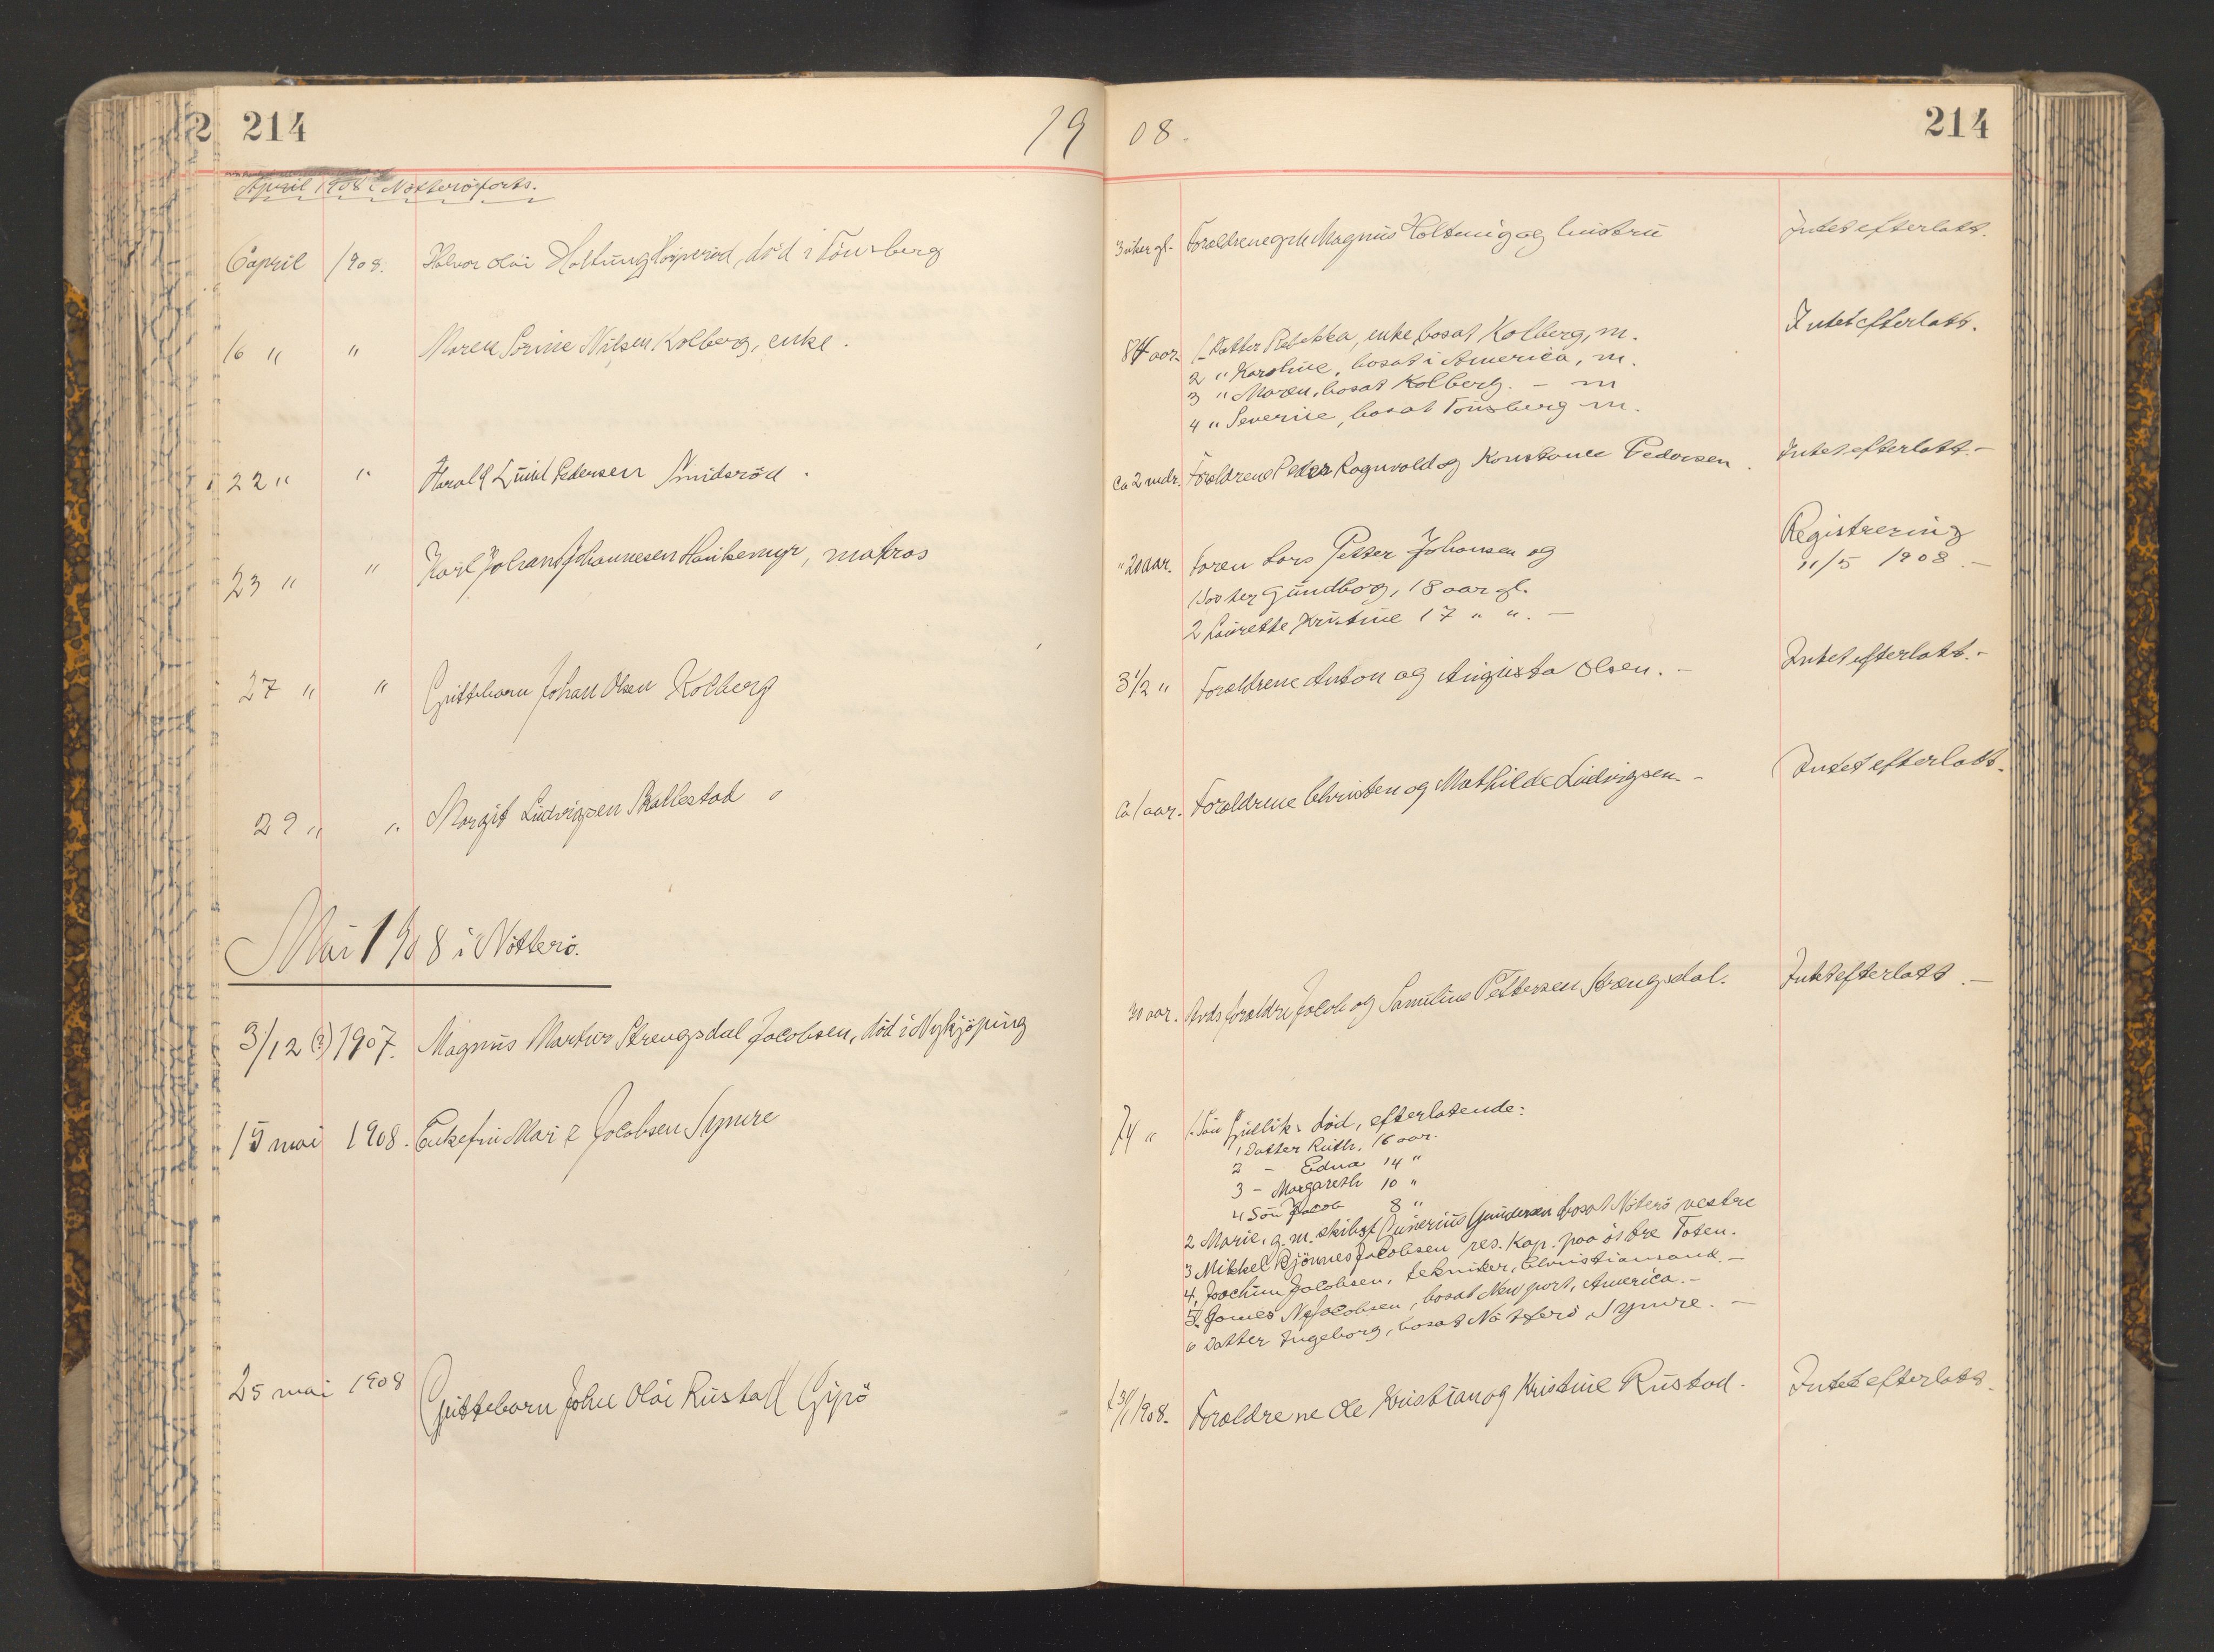 2 214
19 08.
214
April 1908 i Nøtterö forts.
6 april 1908. Halvor Olai Holtung, död i Tönsberg
3 uker gl. Forældrene Magnus Holtung og hustru
Intet efterlatt.
16 " " Maren Sörine Nilsen Kolberg, enke.
84 aar. 1 Datter Rebekka, enke, bosat Kolberg, m.
2 " Karoline, bosat i America, m.
3 " Maren, bosat Kolberg. - m
4 " Severine, bosat Tönsberg m.
Intet efterlatt.
22 " " Harald Pedersen Smidsröd.
Ca 2 mdr. Forældrene Peder Ragnvald og Konstance Pedersen.
Intet efterlatt.-
23 " " Karl Johan Johannesen, matros
" 20 aar. Faren Lars Petter Johansen og
1 Söster Gundborg, 18 aar gl.
2 Laurette Kristine 17 " ". -
Registrering
11/5 1908.-
27 " " Gutteban Johan Olsen Kolberg
3 1/2 " Forældrene Anton og Augusta Olsen. -
Intet efterlatt.-
29 " " Margit Ludvigsen Skallestad
Ca 1 aar. Forældrene Christen og Mathilde Ludvigsen.-
Intet efterlatt.
Mai 1908 i Nötterö.
31/12 (?) 1907. Magnus Martin Strengsdal Jacobsen, död i Nykjöping
30 aar. Avds forældre Jacob og Samiline Pettersen Strengsdal.
Intet efterlatt.-
15 mai 1908. Enkefru Jacobsen Symre
74 " 1. Sön Gullik, död, efterlatende:
1 Datter Ruth, 16 aar.
2 - Edna 14 "
3 - Margareth 10 "
4 Sön Jacob 8 "
2 Marie, g. m. skibsf. Gundersen bosat Nöterö vestre
3 Mikkel Bjönnes Jacobsen res. Kap. paa östre Toten.
4. Joachim Jacobsen, tekniker, Christiansand.-
5. James N. Jacobsen, bosat Newport, America.-
6 Datter Ingeborg, bosat Nötterö, Symre.-
25 mai 1908 Guttebarn John Olai Rustad Gipö
f 31/1 1908. Forældrene Ole Kristian og Kristine Rustad.
Intet efterlatt.